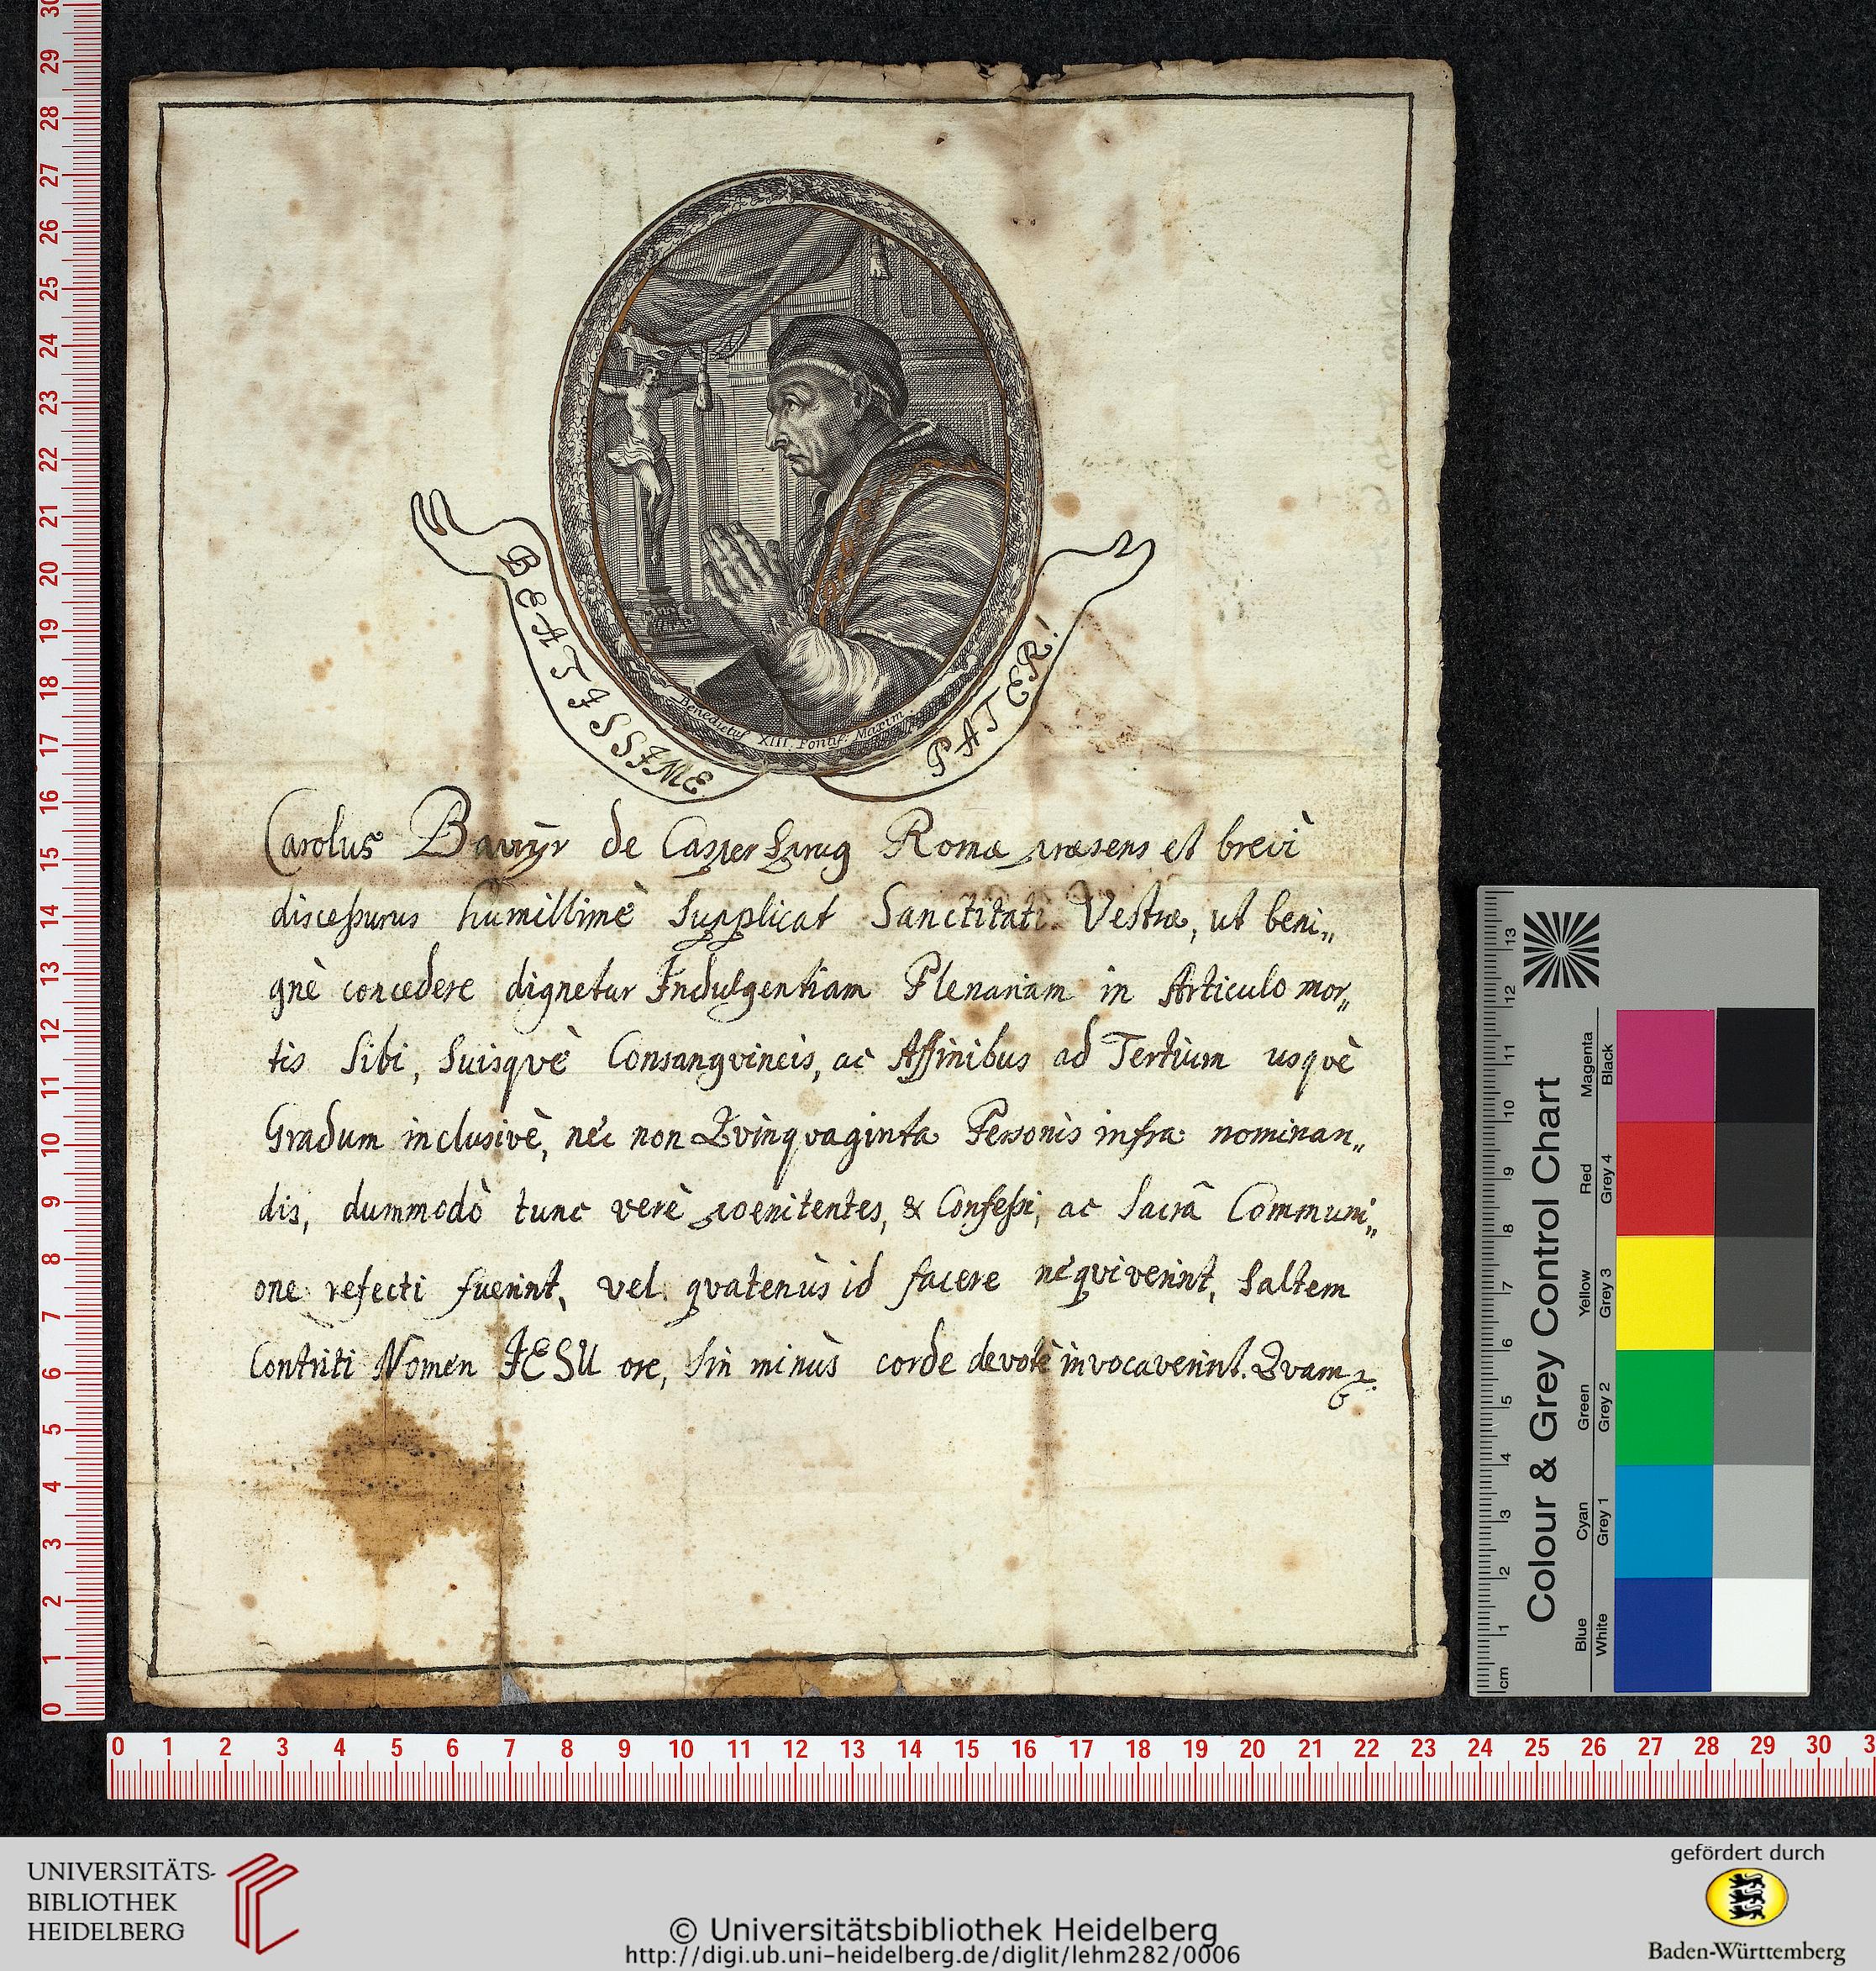 BEATISSIME PATER!
Benedictus XIII. Pontif: Maxim.
Carolus de Romæ præsens et brevi
discessurus humillimè supplicat Sanctitati Vestræ, ut beni„
gnè concedere dignetur Indulgentiam Plenariam in Articulo mor„
tis sibi, suisquè Consangvineis, ac Affinibus ad Tertium usquè
Gradum inclusivè, nec non Qvinqvaginta Personis infra nominan„
dis, dummodò tunc verè poenitentes, & Confessi, ac Sacrâ Communi„
one refecti fuerint, vel qvatenùs id facere neqviverint, saltem
Contriti Nomen JESU ore, sin minùs corde devotè invocaverint. Qvam
Colour & Grey Control Chart
Blue Cyan Green Yellow Red Magenta
White Grey 1 Grey 2 Grey 3 Grey 4 Black
cm 1 2 3 4 5 6 7 8 9 10 11 12 13
30
29
28
27
26
25
24
23
22
21
20
19
18
17
16
15
14
13
12
11
10
9
8
7
6
5
4
3
2
1
0
0 1 2 3 4 5 6 7 8 9 10 11 12 13 14 15 16 17 18 19 20 21 22 23 24 25 26 27 28 29 30
UNIVERSITÄTS-
BIBLIOTHEK
HEIDELBERG
© Universitätsbibliothek Heidelberg
http://digi.ub.uni-heidelberg.de/diglit/lehm282/0006
gefördert durch
Baden-Württemberg